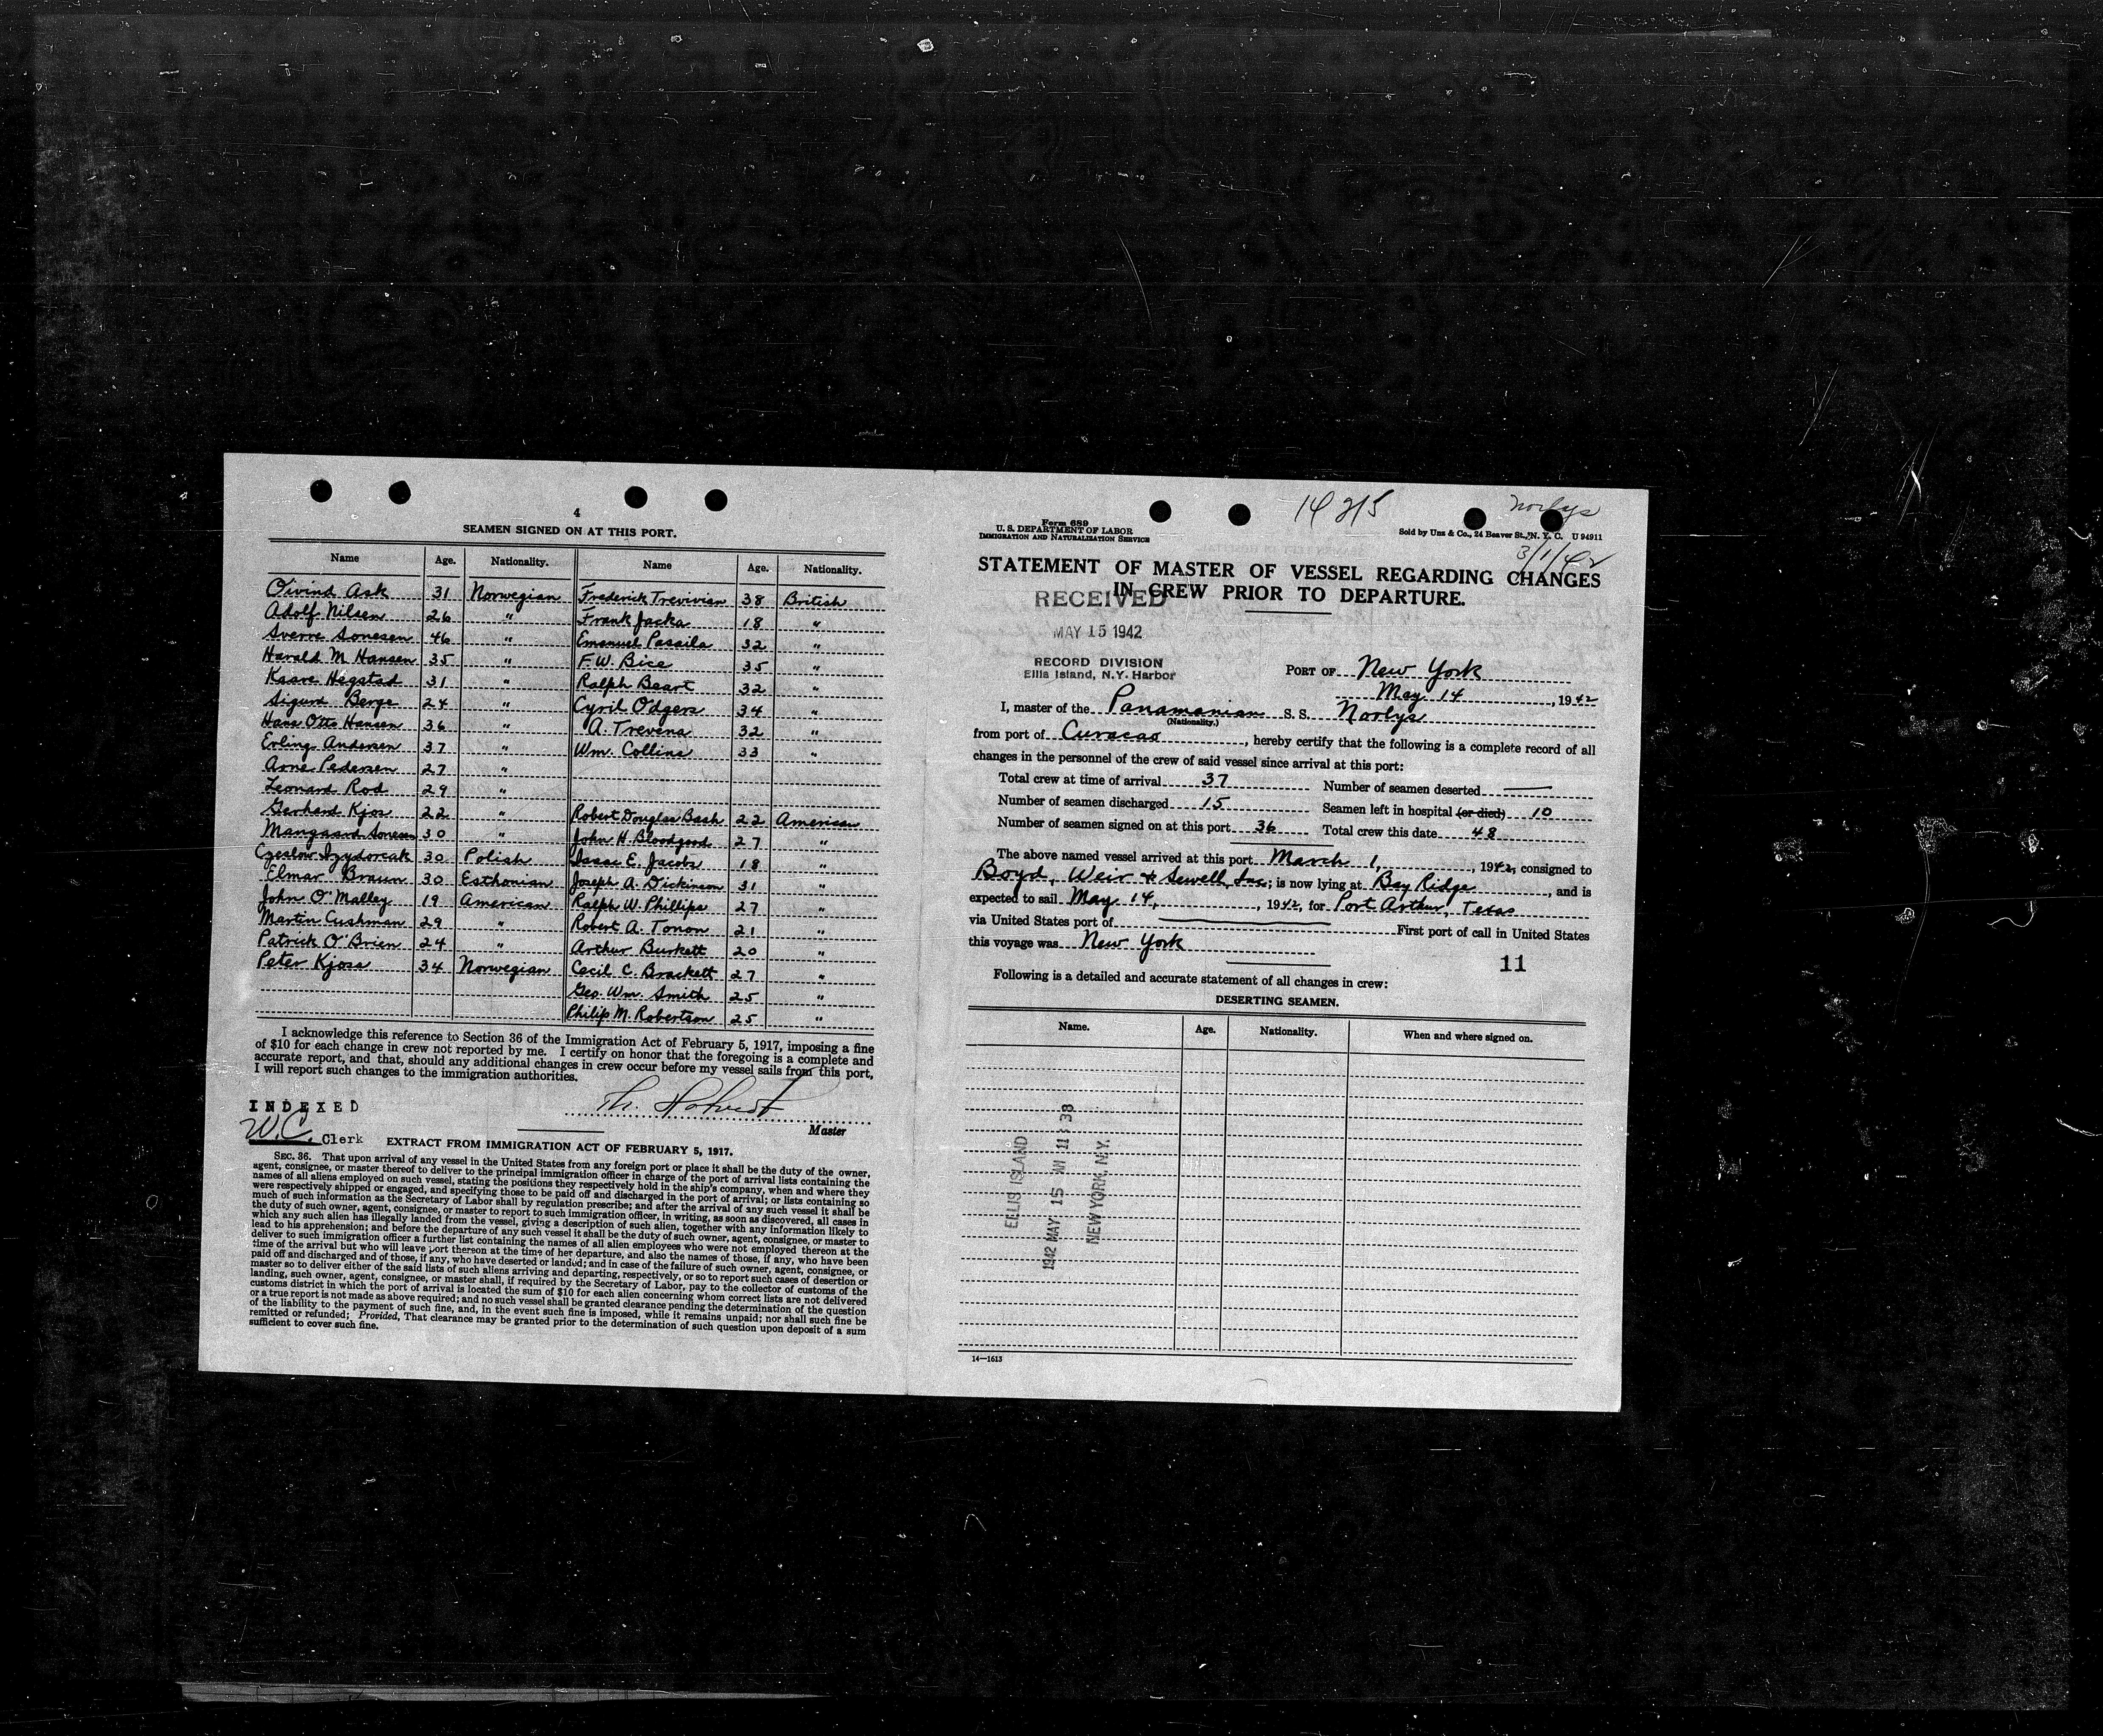 4
SEAMEN SIGNED ON AT THIS PORT.
Name Age. Nationality. Name Age. Nationality.
Oivind Ask 31 Norwegian Frederick Trevivian 38 British
Adolf Nilsen 26 " Frank Jacka 18 "
Sverre Sonesen 46 " Emanuel Passila 32 "
Harald M Hansen 35 " F.W. Bice 35 "
Kaare Hegstad 31 " Ralph Beart 32 "
Sigurd Berge 24 " Cyril Odgers 34 "
Hans Otto Hansen 36 " A. Trevena 32 "
Erling Andersen 37 " Wm. Collins 33 "
Arne Pedersen 27 "
Leonard Rod 29 "
Gerhard Kjos 22 " Robert Douglas Bash 22 American
Mangaard Sonesen 30 " John H. Bloodgood 27 "
Czeslow Izydorcak 30 Polish Isaac E. Jacobs 18 "
Elmar Braun 30 Esthonian Joseph A. Dickinson 31 "
John O'Malley 19 American Ralph W. Phillips 27 "
Martin Cushman 29 " Robert A. Tonon 21 "
Patrick O'Brien 24 " Arthur Burkett 20 "
Peter Kjoss 34 Norwegian Cecil C. Brackett 27 "
Geo. Wm. Smith 25 "
Philip M. Robertson 25 "
I acknowledge this reference to Section 36 of the Immigration Act of February 5, 1917, imposing a fine
of $10 for each change in crew not reported by me. I certify on honor that the foregoing is a complete and
accurate report, and that, should any additional changes in crew occur before my vessel sails from this port,
I will report such changes to the immigration authorities.
INDEXED
W.C. Clerk
Master
EXTRACT FROM IMMIGRATION ACT OF FEBRUARY 5, 1917.
SEC. 36. That upon arrival of any vessel in the United States from any foreign port or place it shall be the duty of the owner,
agent, consignee, or master thereof to deliver to the principal immigration officer in charge of the port of arrival lists containing the
names of all aliens employed on such vessel, stating the positions they respectively hold in the ship's company, when and where they
were respectively shipped or engaged, and specifying those to be paid off and discharged in the port of arrival; or lists containing so
much of such information as the Secretary of Labor shall by regulation prescribe; and after the arrival of any such vessel it shall be
the duty of such owner, agent, consignee, or master to report to such immigration officer, in writing, as soon as discovered, all cases in
which any such alien has illegally landed from the vessel, giving a description of such alien, together with any information likely to
lead to his apprehension; and before the departure of any such vessel it shall be the duty of such owner, agent, consignee, or master to
deliver to such immigration officer a further list containing the names of all alien employees who were not employed thereon at the
time of the arrival but who will leave port thereon at the time of her departure, and also the names of those, if any, who have been
paid off and discharged and of those, if any, who have deserted or landed; and in case of the failure of such owner, agent, consignee, or
master so to deliver either of the said lists of such aliens arriving and departing, respectively, or so to report such cases of desertion or
landing, such owner, agent, consignee, or master shall, if required by the Secretary of Labor, pay to the collector of customs of the
customs district in which the port of arrival is located the sum of $10 for each alien concerning whom correct lists are not delivered
or a true report is not made as above required; and no such vessel shall be granted clearance pending the determination of the question
of the liability to the payment of such fine, and, in the event such fine is imposed, while it remains unpaid; nor shall such fine be
remitted or refunded; Provided, That clearance may be granted prior to the determination of such question upon deposit of a sum
sufficient to cover such fine.
14215
Norlys
3/1/42
Form 689
U. S. DEPARTMENT OF LABOR
IMMIGRATION AND NATURALIZATION SERVICE
Sold by Unz & Co., 24 Beaver St., N. Y. C. U 94911
STATEMENT OF MASTER OF VESSEL REGARDING CHANGES
IN CREW PRIOR TO DEPARTURE.
RECEIVED
MAY 15 1942
RECORD DIVISION
Ellis Island, N.Y. Harbor
PORT OF New York
May 14, 1942
I, master of the Panamanian S. S. Norlys
(Nationality.)
from port of Curacao, hereby certify that the following is a complete record of all
changes in the personnel of the crew of said vessel since arrival at this port:
Total crew at time of arrival 37 Number of seamen deserted —
Number of seamen discharged 15 Seamen left in hospital (or died) 10
Number of seamen signed on at this port 36 Total crew this date 48
The above named vessel arrived at this port March 1, 1942, consigned to
Boyd, Weir & Sewell, Inc; is now lying at Bay Ridge, and is
expected to sail May 14, 1942, for Port Arthur, Texas
via United States port of — First port of call in United States
this voyage was New York
11
Following is a detailed and accurate statement of all changes in crew:
DESERTING SEAMEN.
Name. Age. Nationality. When and where signed on.
ELLIS ISLAND
1942 MAY 15 AM 11 38
NEW YORK, N.Y.
14—1613